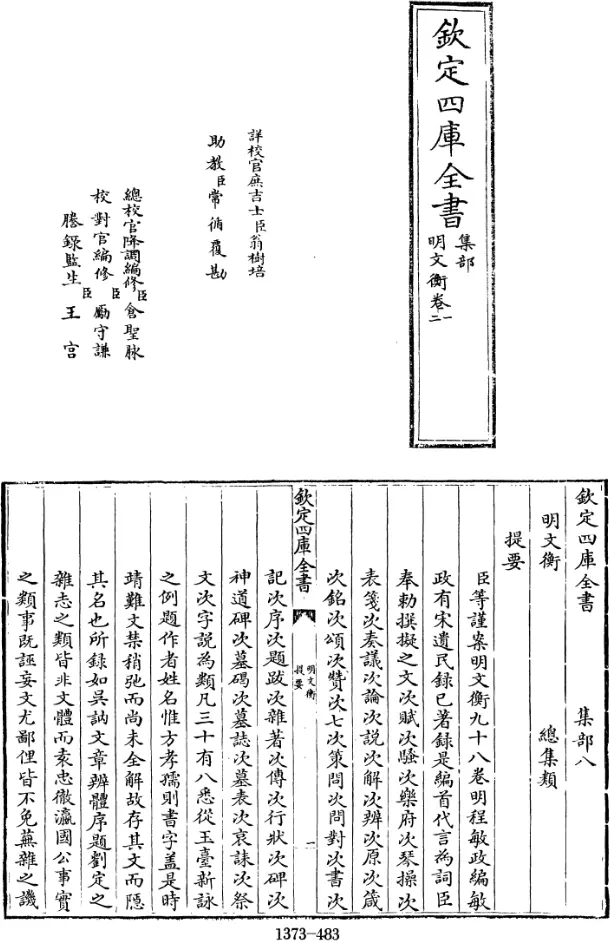 欽定四庫全書
集部
明文衡卷一
二
詳校官庶吉士臣翁樹培
助教臣常循覆勘
總校官降調編修臣倉聖脉
校對官編修臣勵守謙
謄錄監生臣王宫
欽定四庫全書 集部八
明文衡 總集類
提要
臣等謹案明文衡九十八卷明程敏政編敏
政有宋遺民録已著録是編首代言為詞臣
奉勅撰擬之文次賦次騷次樂府次琴操次
表箋次奏議次論次説次解次辨次原次箴
次銘次頌次贊次七次策問次問對次書次
欽定四庫全書
明文衡
提要
一
記次序次題跋次雜著次傳次行狀次碑次
神道碑次墓碣次墓誌次墓表次哀誄次祭
文次字説為類凡三十有八悉從玉臺新詠
之例題作者姓名惟方孝孺則書字盖是時
靖難文禁稍弛而尚未全解故存其文而隱
其名也所録如吳訥文章辨體序題劉定之
雜志之類皆非文體而袁忠徹瀛國公事實
之類事既誣妄文尤鄙俚皆不免蕪雜之譏
1373-483